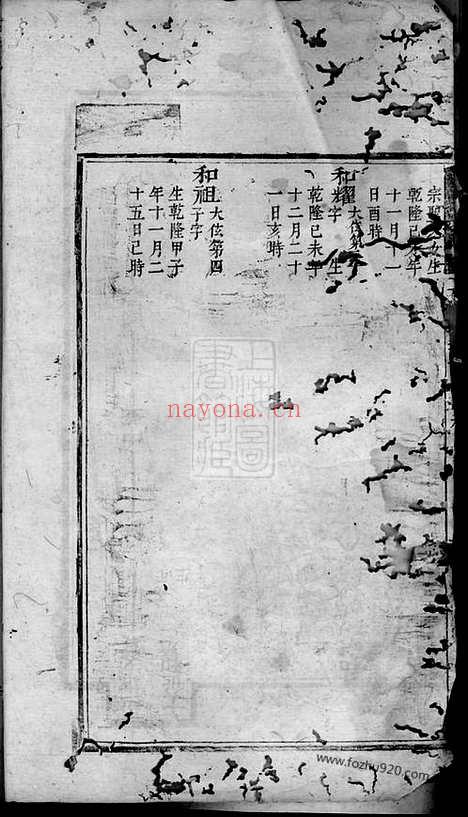 宗
女生
乾隆己未年
十一月十一
日酉時
和耀
大伭第
字
生
乾隆己未年
十二月二十
一日亥時
和祖
大伭第四
子字
生乾隆甲子
年十一月二
十五日己時
上海圖
書館藏
nayona.cn
www.fozhu920.com